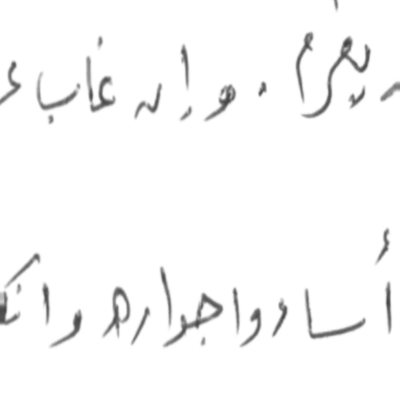 يغرم. وإن غاب
أساءوا جواره وانك